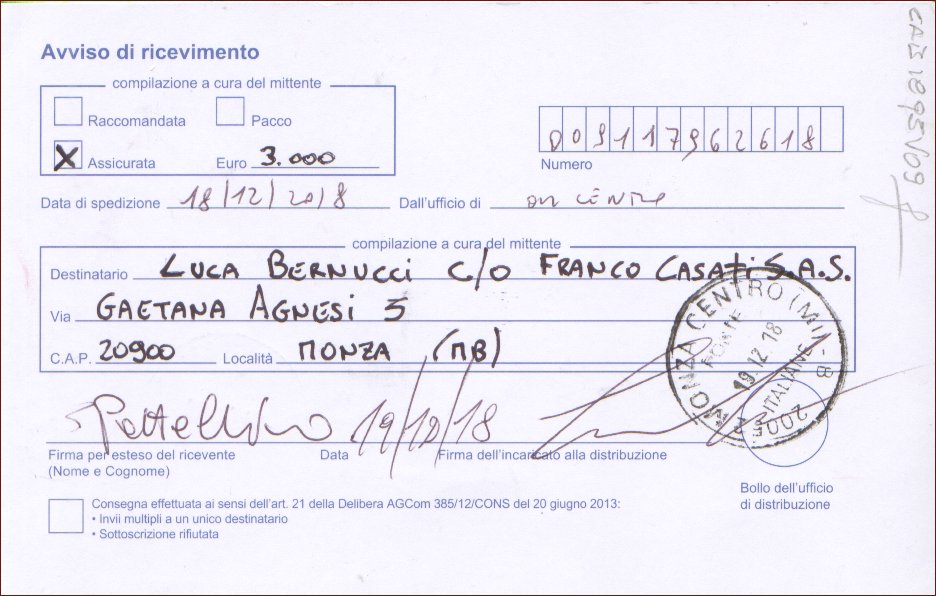 Avviso di ricevimento
compilazione a cura del mittente
Raccomandata Pacco
X Assicurata Euro 3.000
009117962618
Numero
Data di spedizione 18/12/2018 Dall'ufficio di CENTRO
compilazione a cura del mittente
Destinatario LUCA BERNUCCI C/O FRANCO CASATI S.A.S.
Via GAETANA AGNESI 5
C.A.P. 20900 Località MONZA (MB)
MONZA CENTRO (MI) - B
19.12.18
POSTE ITALIANE
19/12/18
Firma per esteso del ricevente Data Firma dell'incaricato alla distribuzione
(Nome e Cognome)
Bollo dell'ufficio
di distribuzione
Consegna effettuata ai sensi dell'art. 21 della Delibera AGCom 385/12/CONS del 20 giugno 2013:
• Invii multipli a un unico destinatario
• Sottoscrizione rifiutata